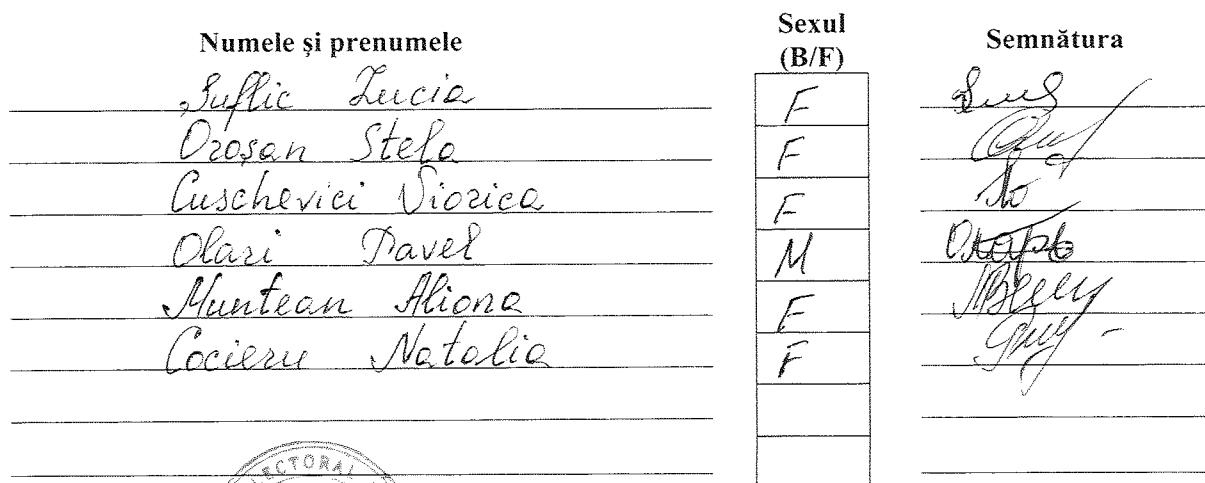 Numele și prenumele Sexul (B/F) Semnătura
Suflic Lucia F
Oroșan Stela F
Cuschevici Viorica F
Olari Pavel M
Muntean Aliona F
Cocieru Natalia F